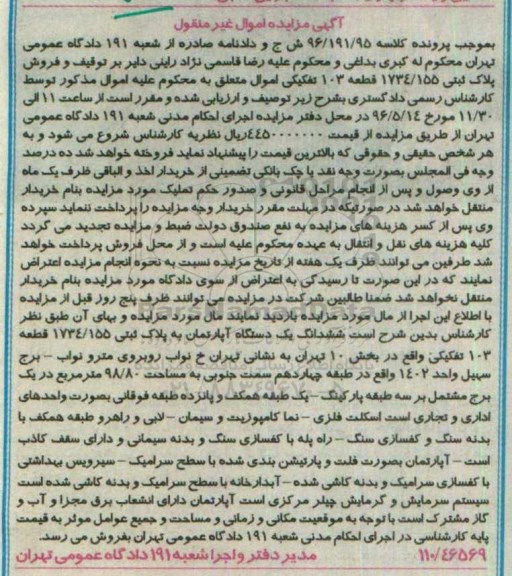 آگهی مزایده اموال غیر منقول
بموجب پرونده کلاسه ۹۶/۱۹۱/۹۵ ش ج و دادنامه صادره از شعبه ۱۹۱ دادگاه عمومی
تهران محکوم له کبری بداغی و محکوم علیه رضا قاسمی نژاد راینی دایر بر توقیف و فروش
پلاک ثبتی ۱۷۳۴/۱۵۵ قطعه ۱۰۳ تفکیکی اموال متعلق به محکوم علیه اموال مذکور توسط
کارشناس رسمی دادگستری بشرح زیر توصیف و ارزیابی شده و مقرر است از ساعت ۱۱ الی
۱۱/۳۰ مورخ ۹۶/۵/۱۴ در محل دفتر مزایده اجرای احکام مدنی شعبه ۱۹۱ دادگاه عمومی
تهران از طریق مزایده از قیمت ۴۴۵۰۰۰۰۰۰۰ریال نظریه کارشناس شروع می شود و به
هر شخص حقیقی و حقوقی که بالاترین قیمت را پیشنهاد نماید فروخته خواهد شد ده درصد
وجه فی المجلس بصورت وجه نقد یا چک بانکی تضمینی از خریدار اخذ و الباقی ظرف یک ماه
از وی وصول و پس از انجام مراحل قانونی و صدور حکم تملیک مورد مزایده بنام خریدار
منتقل خواهد شد در صورتیکه در مهلت مقرر خریدار وجه مزایده را پرداخت ننماید سپرده
وی پس از کسر هزینه های مزایده به نفع صندوق دولت ضبط و مزایده تجدید می گردد
کلیه هزینه های نقل و انتقال به عهده محکوم علیه است و از محل فروش پرداخت خواهد
شد طرفین می توانند ظرف یک هفته از تاریخ مزایده نسبت به نحوه انجام مزایده اعتراض
نمایند که در این صورت تا رسیدگی به اعتراض از سوی دادگاه مورد مزایده بنام خریدار
منتقل نخواهد شد ضمنا طالبین شرکت در مزایده می توانند ظرف پنج روز قبل از مزایده
با اطلاع این اجرا از مال مورد مزایده بازدید نمایند مال مورد مزایده و بهای آن طبق نظر
کارشناس بدین شرح است ششدانگ یک دستگاه آپارتمان به پلاک ثبتی ۱۷۳۴/۱۵۵ قطعه
۱۰۳ تفکیکی واقع در بخش ۱۰ تهران به نشانی تهران خ نواب روبروی مترو نواب – برج
سهیل واحد ۱۴۰۲ واقع در طبقه چهاردهم سمت جنوبی به مساحت ۹۸/۸۰ مترمربع در یک
برج مشتمل بر سه طبقه پارکینگ – یک طبقه همکف و پانزده طبقه فوقانی بصورت واحدهای
اداری و تجاری است اسکلت فلزی – نما کامپوزیت و سیمان – لابی و راهرو طبقه همکف با
بدنه سنگ و کفسازی سنگ – راه پله با کفسازی سنگ و بدنه سیمانی و دارای سقف کاذب
است – آپارتمان بصورت فلت و پارتیشن بندی شده با سطح سرامیک – سیرویس بهداشتی
با کفسازی سرامیک و بدنه کاشی شده – آبدارخانه با سطح سرامیک و بدنه کاشی شده است
سیستم سرمایش و گرمایش چیلر مرکزی است آپارتمان دارای انشعاب برق مجزا و آب و
گاز مشترک است با توجه به موقعیت مکانی و زمانی و مساحت و جمیع عوامل موثر به قیمت
پایه کارشناسی در اجرای احکام مدنی شعبه ۱۹۱ دادگاه عمومی تهران بفروش می رسد.
۱۱۰/۴۶۵۶۹ مدیر دفتر و اجرا شعبه ۱۹۱ دادگاه عمومی تهران